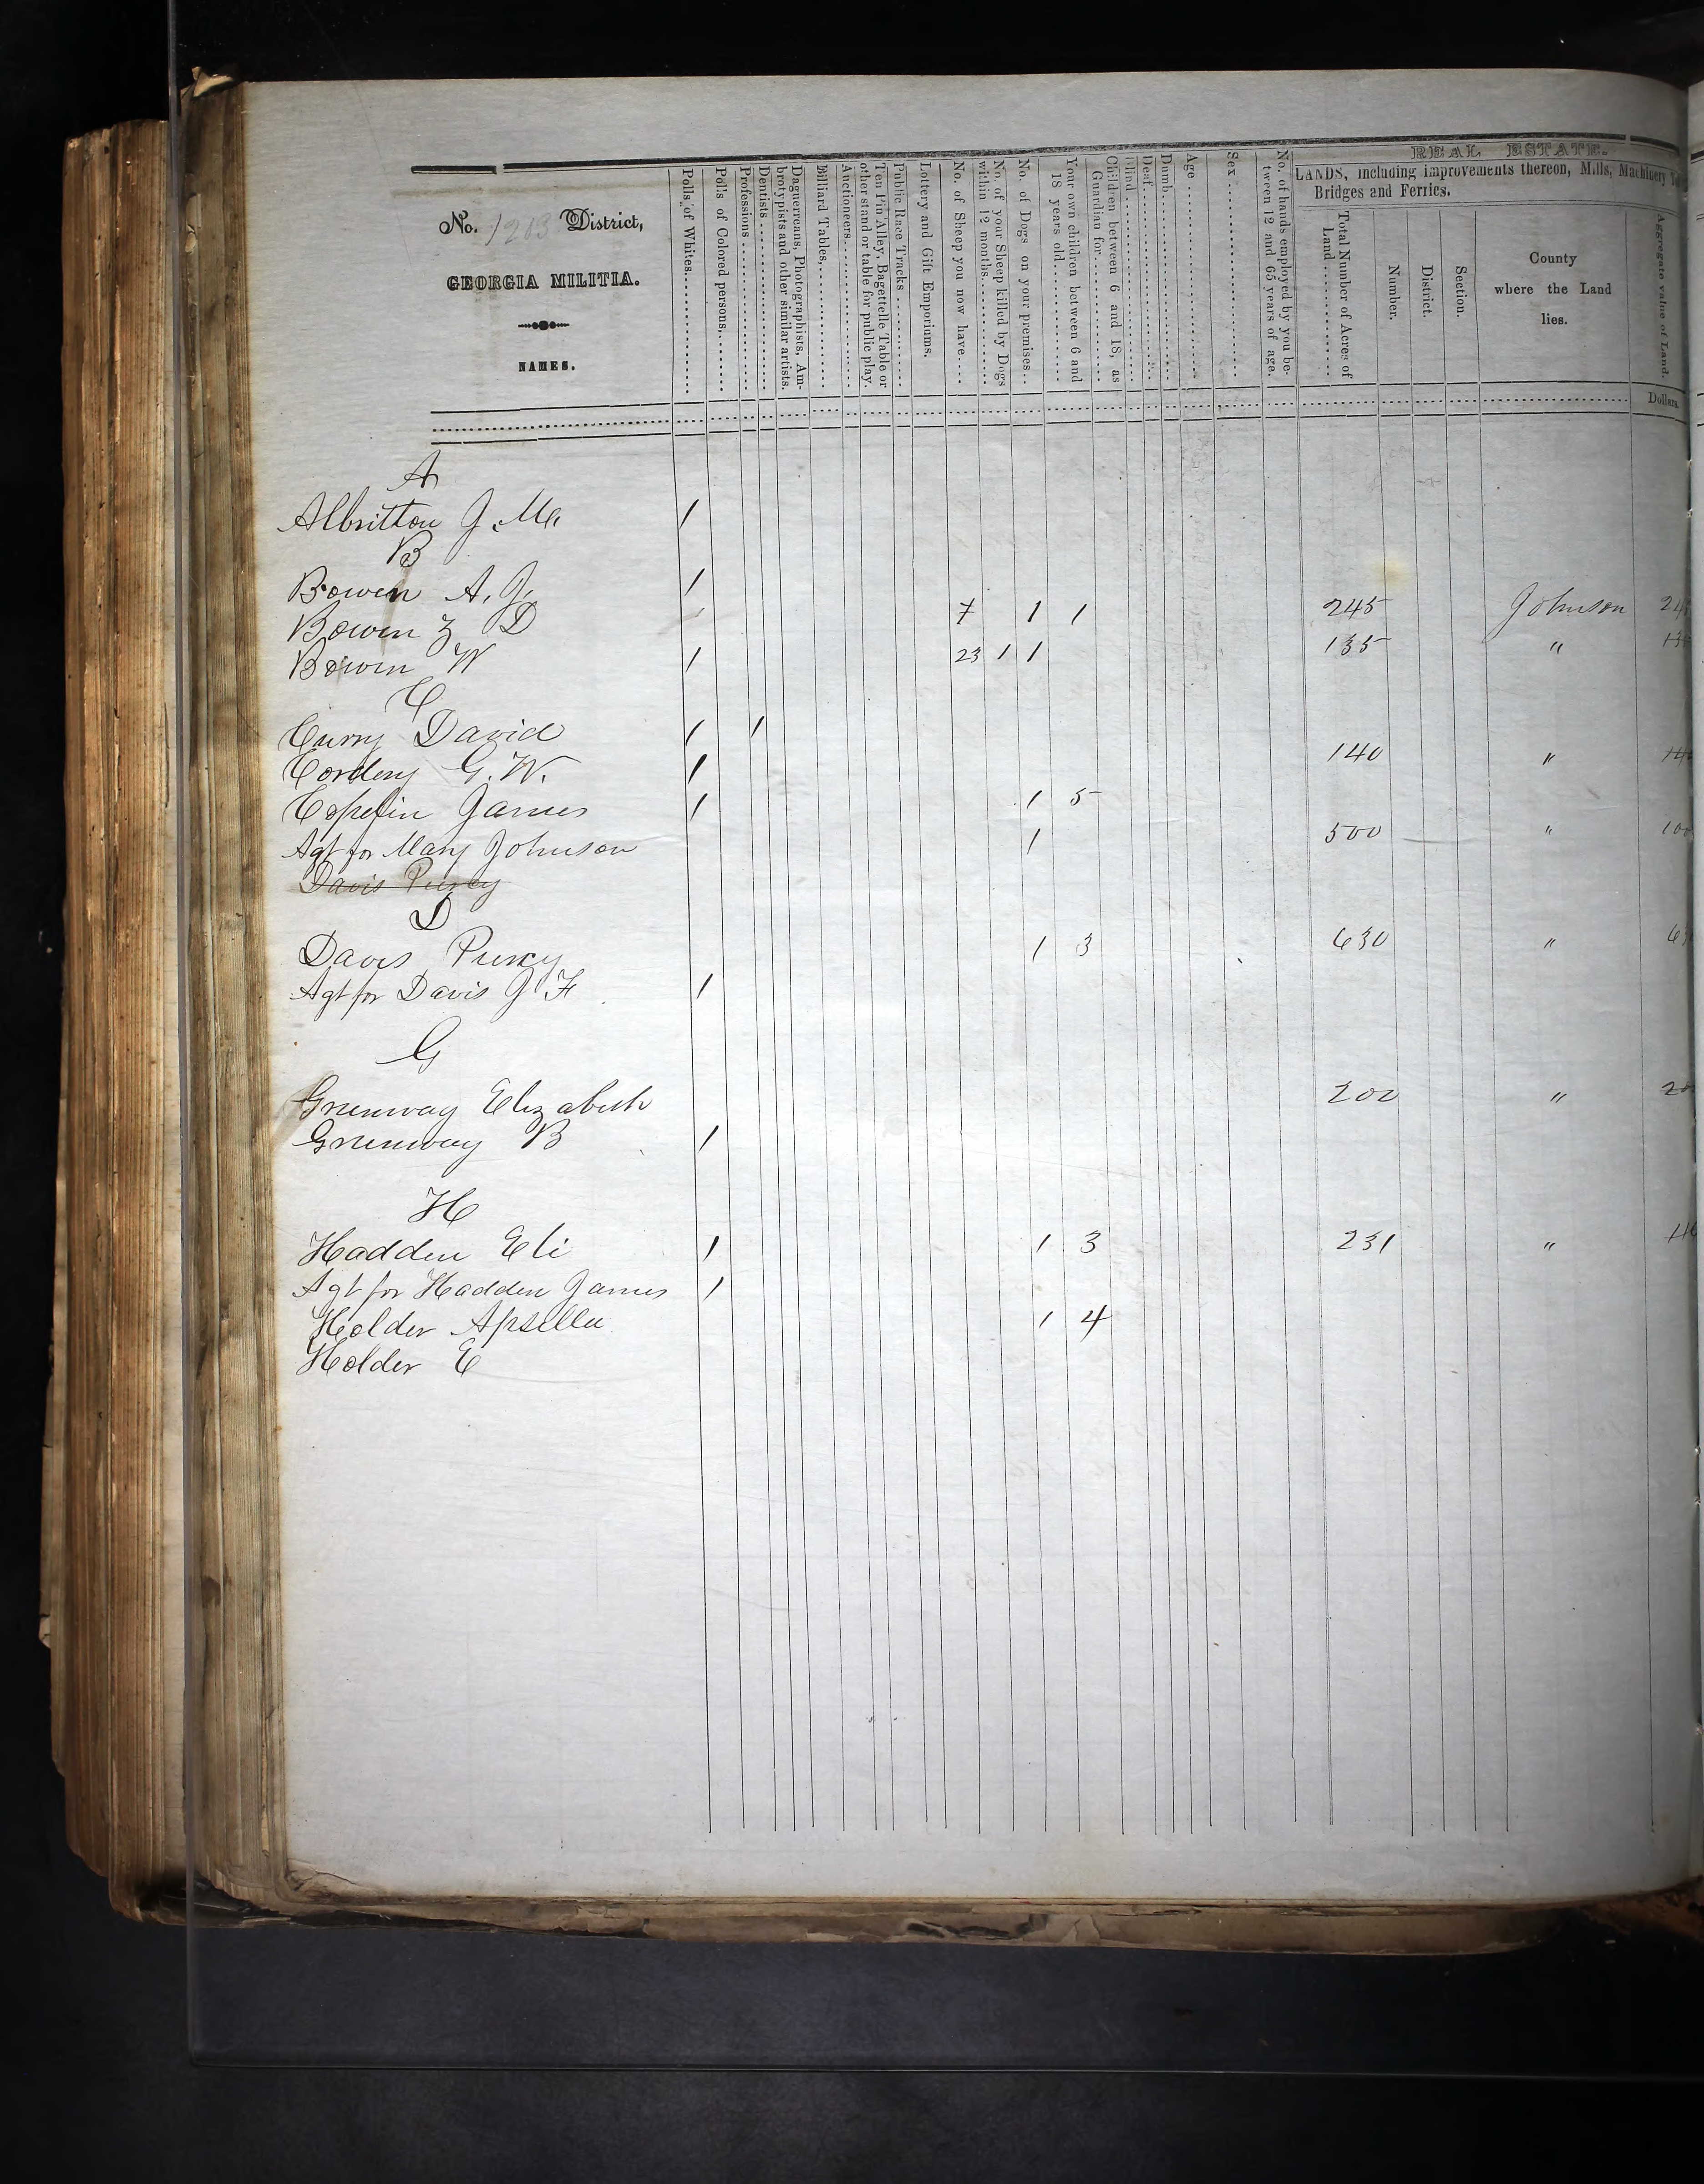 No. 1203 District,
GEORGIA MILITIA.
NAMES.
Polls of Whites
Polls of Colored persons,
Professions
Dentists
Daguerreans, Photographists, Am-
brotypists and other similar artists.
Billiard Tables,
Auctioneers
Ten Pin Alley, Bagettelle Table or
other stand or table for public play.
Public Race Tracks
Lottery and Gift Emporiums.
No. of Sheep you now have
No. of your Sheep killed by Dogs
within 12 months.
No. of Dogs on your premises
Your own children between 6 and
18 years old
Children between 6 and 18, as
Guardian for
Blind
Deaf
Dumb
Age
Sex
No. of hands employed by you be-
tween 12 and 65 years of age.
REAL ESTATE.
LANDS, including improvements thereon, Mills, Machinery
Bridges and Ferries.
Total Number of Acres of
Land
Number.
District.
Section.
County
where the Land
lies.
Aggregate value of Land.
Dollars.
A
Albritton J. Mc 1
B
Bowen A. J. 1
Bowen Z D 7 1 1 245 Johnson 24
Bowen W 1 23 1 1 135 " 13
C
Curry David 1 1
Cordery G. W. 1 140 " 14
Copefin James 1 1 5
Agt for Mary Johnson 1 500 " 100
Davis Piercy
D
Davis Piercy 1 3 630 " 63
Agt for Davis J F 1
G
Greenway Elizabeth 202 " 20
Greenway B 1
H
Hadden Eli 1 1 3 231 "
Agt for Hadden James 1
Holder Apsilla 1 4
Holder E